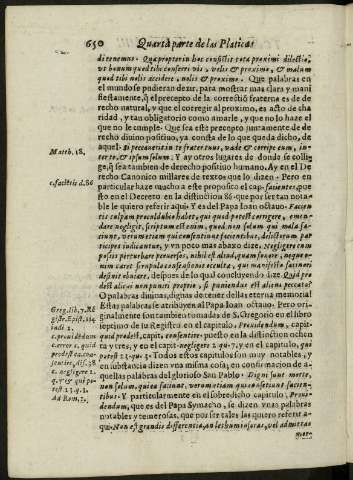 650 Quarta parte de las Platicas
di tenemus. Quapropter in hoc consistit tota proximi dilectio,
vt bonum quod tibi conferri vis, velis & proximo, & malum
quod tibi nolis accidere, nolis & proximo. Que palabras en
el mundo se pudieran dezir, para mostrar mas clara y mani
fiestamente, q̃ el precepto de la correctiõ fraterna es de de
recho natural, y que el corregir al proximo, es acto de cha
ridad, y tan obligatorio como amarle, y que no lo haze el
que no le cumple. Que sea este precepto juntamente de de
recho diuino positiuo, ya consta de lo que queda dicho, de
Matth. 18.
aquel. Si peccauerit in te frater tuus, vade & corripe eum, in
ter te, & ipsum solum. Y ay otros lugares de donde se collige,
q̃ sea tambien de derecho positiuo humano. Ay en el De
recho Canonico millares de textos que lo dizen. Pero en
c. facientis d. 86
particular haze mucho a este proposito el cap. facientes, pue
sto en el Decreto en la distinction 86 que por ser tan nota
ble le quiero referir aqui. Y es del Papa Ioan octauo. Facien
tis culpam procul dubio habet, qui quod potest corrigere, emen
dare negligit, scriptum est enim, quod non solum qui mala fa
ciunt, verum etiam qui consentiunt facientibus, delictorum par
ticipes iudicantur, y vn poco mas abaxo dize. Negligere cum
possis perturbare peruersos, nihil est aliud, quam fouere, neque e
nim caret scrupulo consensionis occulta, qui manifesto facinori
desinit obuiare, despues de lo qual concluyendo dize. Quid pro
dest alicui non puniri proprio, si puniendus est alieno peccato?
O palabras diuinas, dignas de tener dellas eterna memoria!
Estas palabras se atribuyen al Papa Ioan octauo. Pero origi
Greg. lib. 7. Re
gistr. Epist. 114
indi. 2.
c. prouidendũ
c. error. c. quid
prodest c. con
sentire, dis. 83
c. negligere 2.
q. 7. & qui po
test 23. q. 3.
Ad Rom. 1.
nalmente son tambien tomadas de S. Gregorio en el libro
septimo de su Registro en el capitulo, Prouidendum, capit.
quid prodest, capit, consentire: puesto en la distinction ochen
ta y tres, y en el capit. negligere 2. q. 7. y en el capitulo, qui
potest 23. q. 3. Todos estos capitulos son muy notables, y
en substancia dizen vna misma cosa, en confirmacion de a-
quellas palabras del glorioso San Pablo. Digni sunt morte,
non solum, qui ea faciunt, verum etiam qui consentiunt facien-
tibus. Y particularmente en el sobredicho capitulo, Proui-
dendum, que es del Papa Symacho, se dizen vnas palabras
notables y temerosas, que por ser tales las quiero referir a-
qui. Non est grandis differentia, an lethum inferas, vel admittas